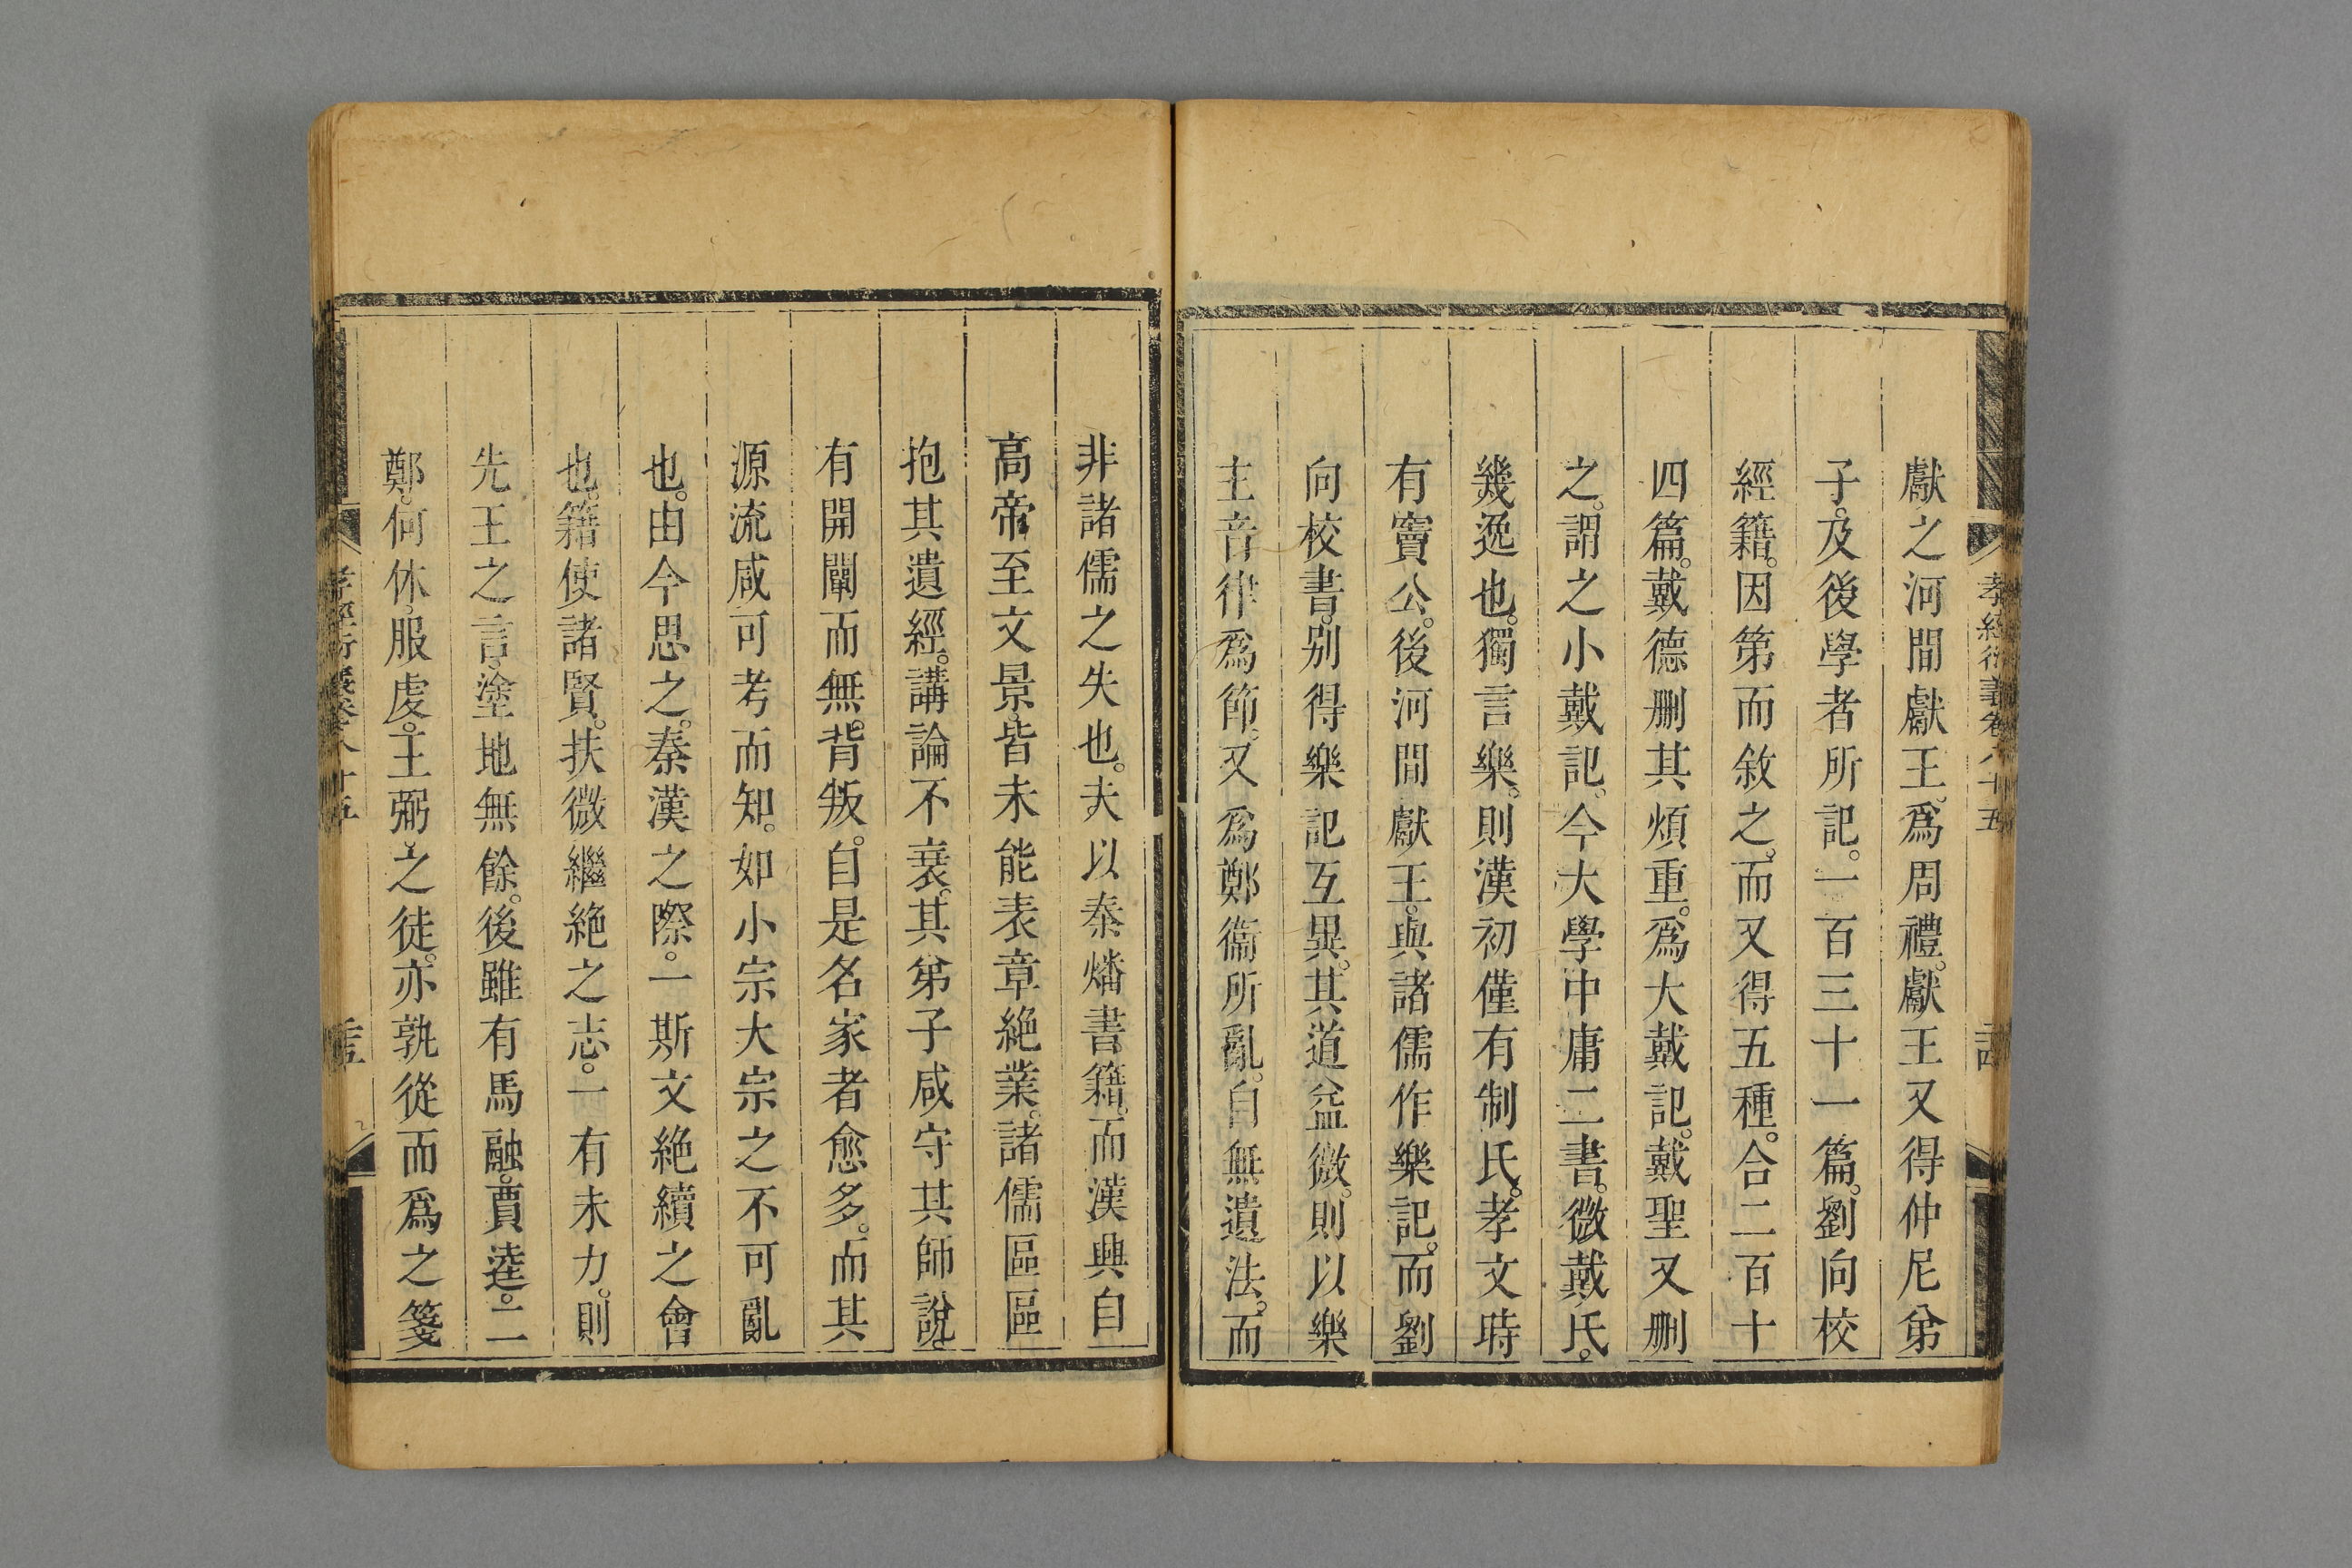 獻之河間獻王。爲周禮。獻王又得仲尼弟
子。及後學者所記。一百三十一篇。劉向校
經籍。因第而敘之。而又得五種。合二百十
四篇。戴德刪其煩重。爲大戴記。戴聖又刪
之。謂之小戴記。今大學中庸二書。微戴氏。
幾逸也。獨言樂。則漢初僅有制氏。孝文時
有竇公。後河間獻王。與諸儒作樂記。而劉
向校書。别得樂記互異。其道益微。則以樂
主音律爲節。又爲鄭衞所亂。自無遺法。而
非諸儒之失也。夫以秦燔書籍。而漢興自
高帝至文景。皆未能表章絶業。諸儒區區
抱其遺經。講論不衰。其弟子咸守其師說。
有開闡而無背叛。自是名家者愈多。而其
源流咸可考而知。如小宗大宗之不可亂
也。由今思之。秦漢之際。一斯文絶續之會
也。籍使諸賢。扶微繼絶之志。一有未力。則
先王之言。塗地無餘。後雖有馬融。賈逵。二
鄭。何休。服虔。王弼之徒。亦孰從而爲之箋
孝經衍義卷八十五